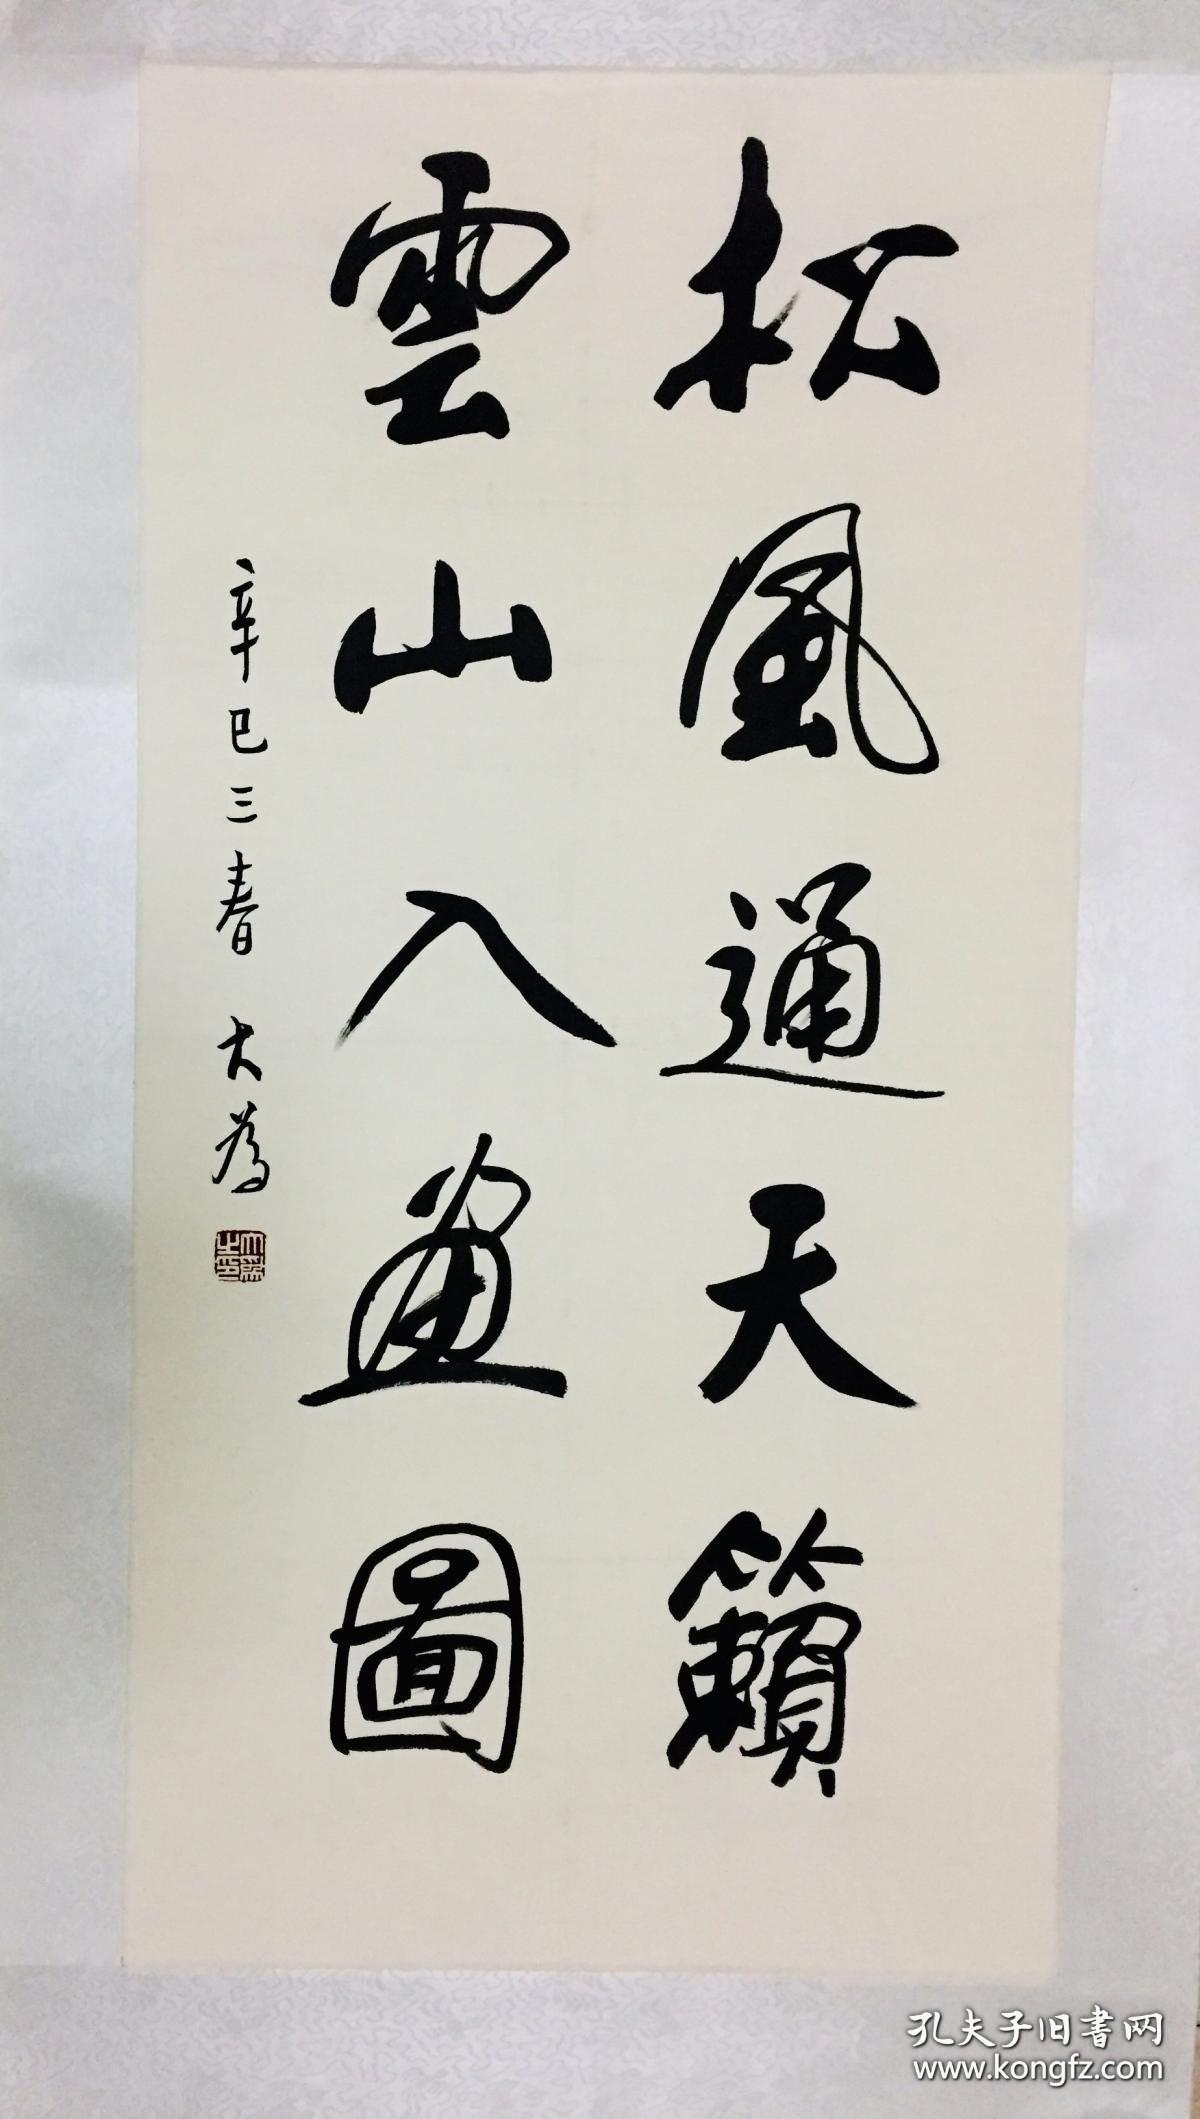 松風通天籟
雲山入畫圖
辛巳三春 大為
大為之印
孔夫子旧書网
www.kongfz.com